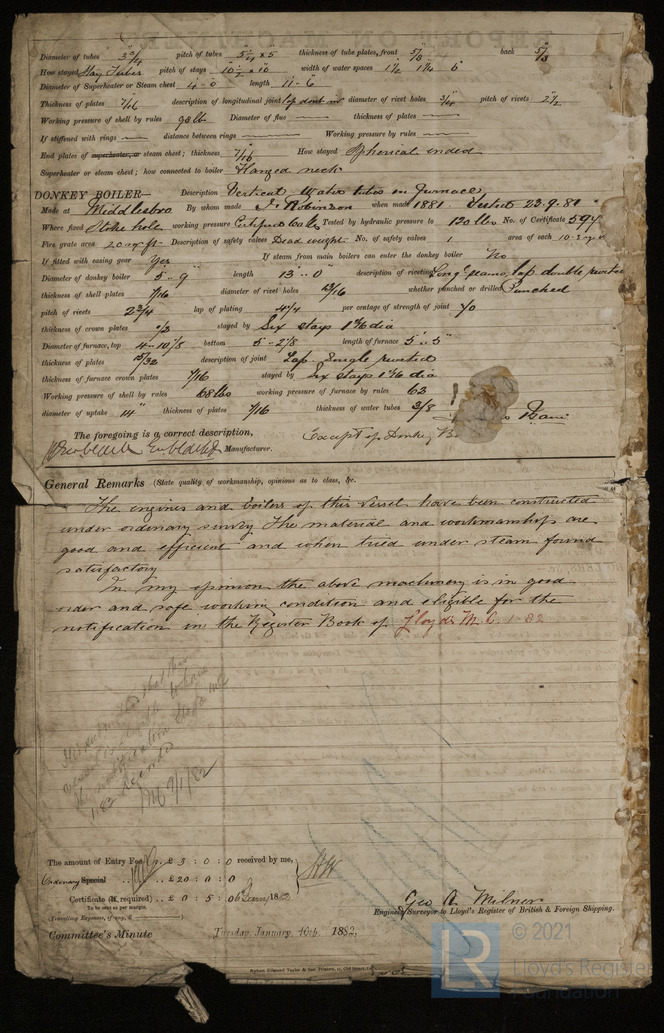 Diameter of tubes 3 3/4" pitch of tubes 5 1/4" x 5 thickness of tube plates, front 5/8" back 5/8"
How stayed Stay Tubes pitch of stays 10 1/2" x 10" width of water spaces 1 1/2" 1 1/4" 6"
Diameter of Superheater or Steam chest 4'-0" length 11'-6"
Thickness of plates 7/16 description of longitudinal joint lap doub riv diameter of rivet holes 3/4" pitch of rivets 2 1/2
Working pressure of shell by rules 90 lb Diameter of flue — thickness of plates —
If stiffened with rings — distance between rings — Working pressure by rules —
End plates of superheater, or steam chest; thickness 7/16 How stayed Spherical ended
Superheater or steam chest; how connected to boiler Flanged neck
DONKEY BOILER— Description Vertical Water tubes in furnace
Made at Middlesbro By whom made J. Robinson when made 1881. Tested 23.9.81
Where fixed Stoke hole working pressure Certified 60 lbs Tested by hydraulic pressure to 120 lbs No. of Certificate 594
Fire grate area 20 sq ft Description of safety valves Dead weight No. of safety valves 1 area of each
If fitted with easing gear Yes If steam from main boilers can enter the donkey boiler No
Diameter of donkey boiler 5'-9" length 13'-0" description of riveting Long seams, lap double riveted
thickness of shell plates 7/16 diameter of rivet holes 13/16 whether punched or drilled Punched
pitch of rivets 2 3/4 lap of plating 4 1/4 per centage of strength of joint 70
thickness of crown plates stayed by Six stays 1 9/16 dia
Diameter of furnace, top 4'-10 1/8 bottom 5'-2 1/8 length of furnace 5'-5"
thickness of plates 15/32 description of joint Lap Single riveted
thickness of furnace crown plates 7/16 stayed by Six stays 1 9/16 dia
Working pressure of shell by rules 68 lbs working pressure of furnace by rules 63
diameter of uptake 14" thickness of plates 7/16 thickness of water tubes 3/8
The foregoing is a correct description,
Except of Donkey
Manufacturer.
General Remarks (State quality of workmanship, opinions as to class, &c.
The engines and boilers of this vessel have been constructed
under ordinary survey The material and workmanship are
good and efficient and when tried under steam found
satisfactory
In my opinion the above machinery is in good
order and safe working condition and eligible for the
notification in the Register Book of Lloyds M.C. 1-82
It is submitted that this
vessel is eligible to have
the notification Lloyds MC
1.82 recorded
9/1/82
The amount of Entry Fee .. £ 3 : 0 : 0 received by me,
Ordinary Special .. £20 : 0 : 0
Certificate (if required) .. £ 0 : 5 : 0 6 Jany 1882
To be sent as per margin.
(Travelling Expenses, if any, £ )
Geo A. Milner
Engineer Surveyor to Lloyd's Register of British & Foreign Shipping.
Committee's Minute Tuesday, January, 10th, 1882,
© 2021
Lloyd's Register
Foundation
LR